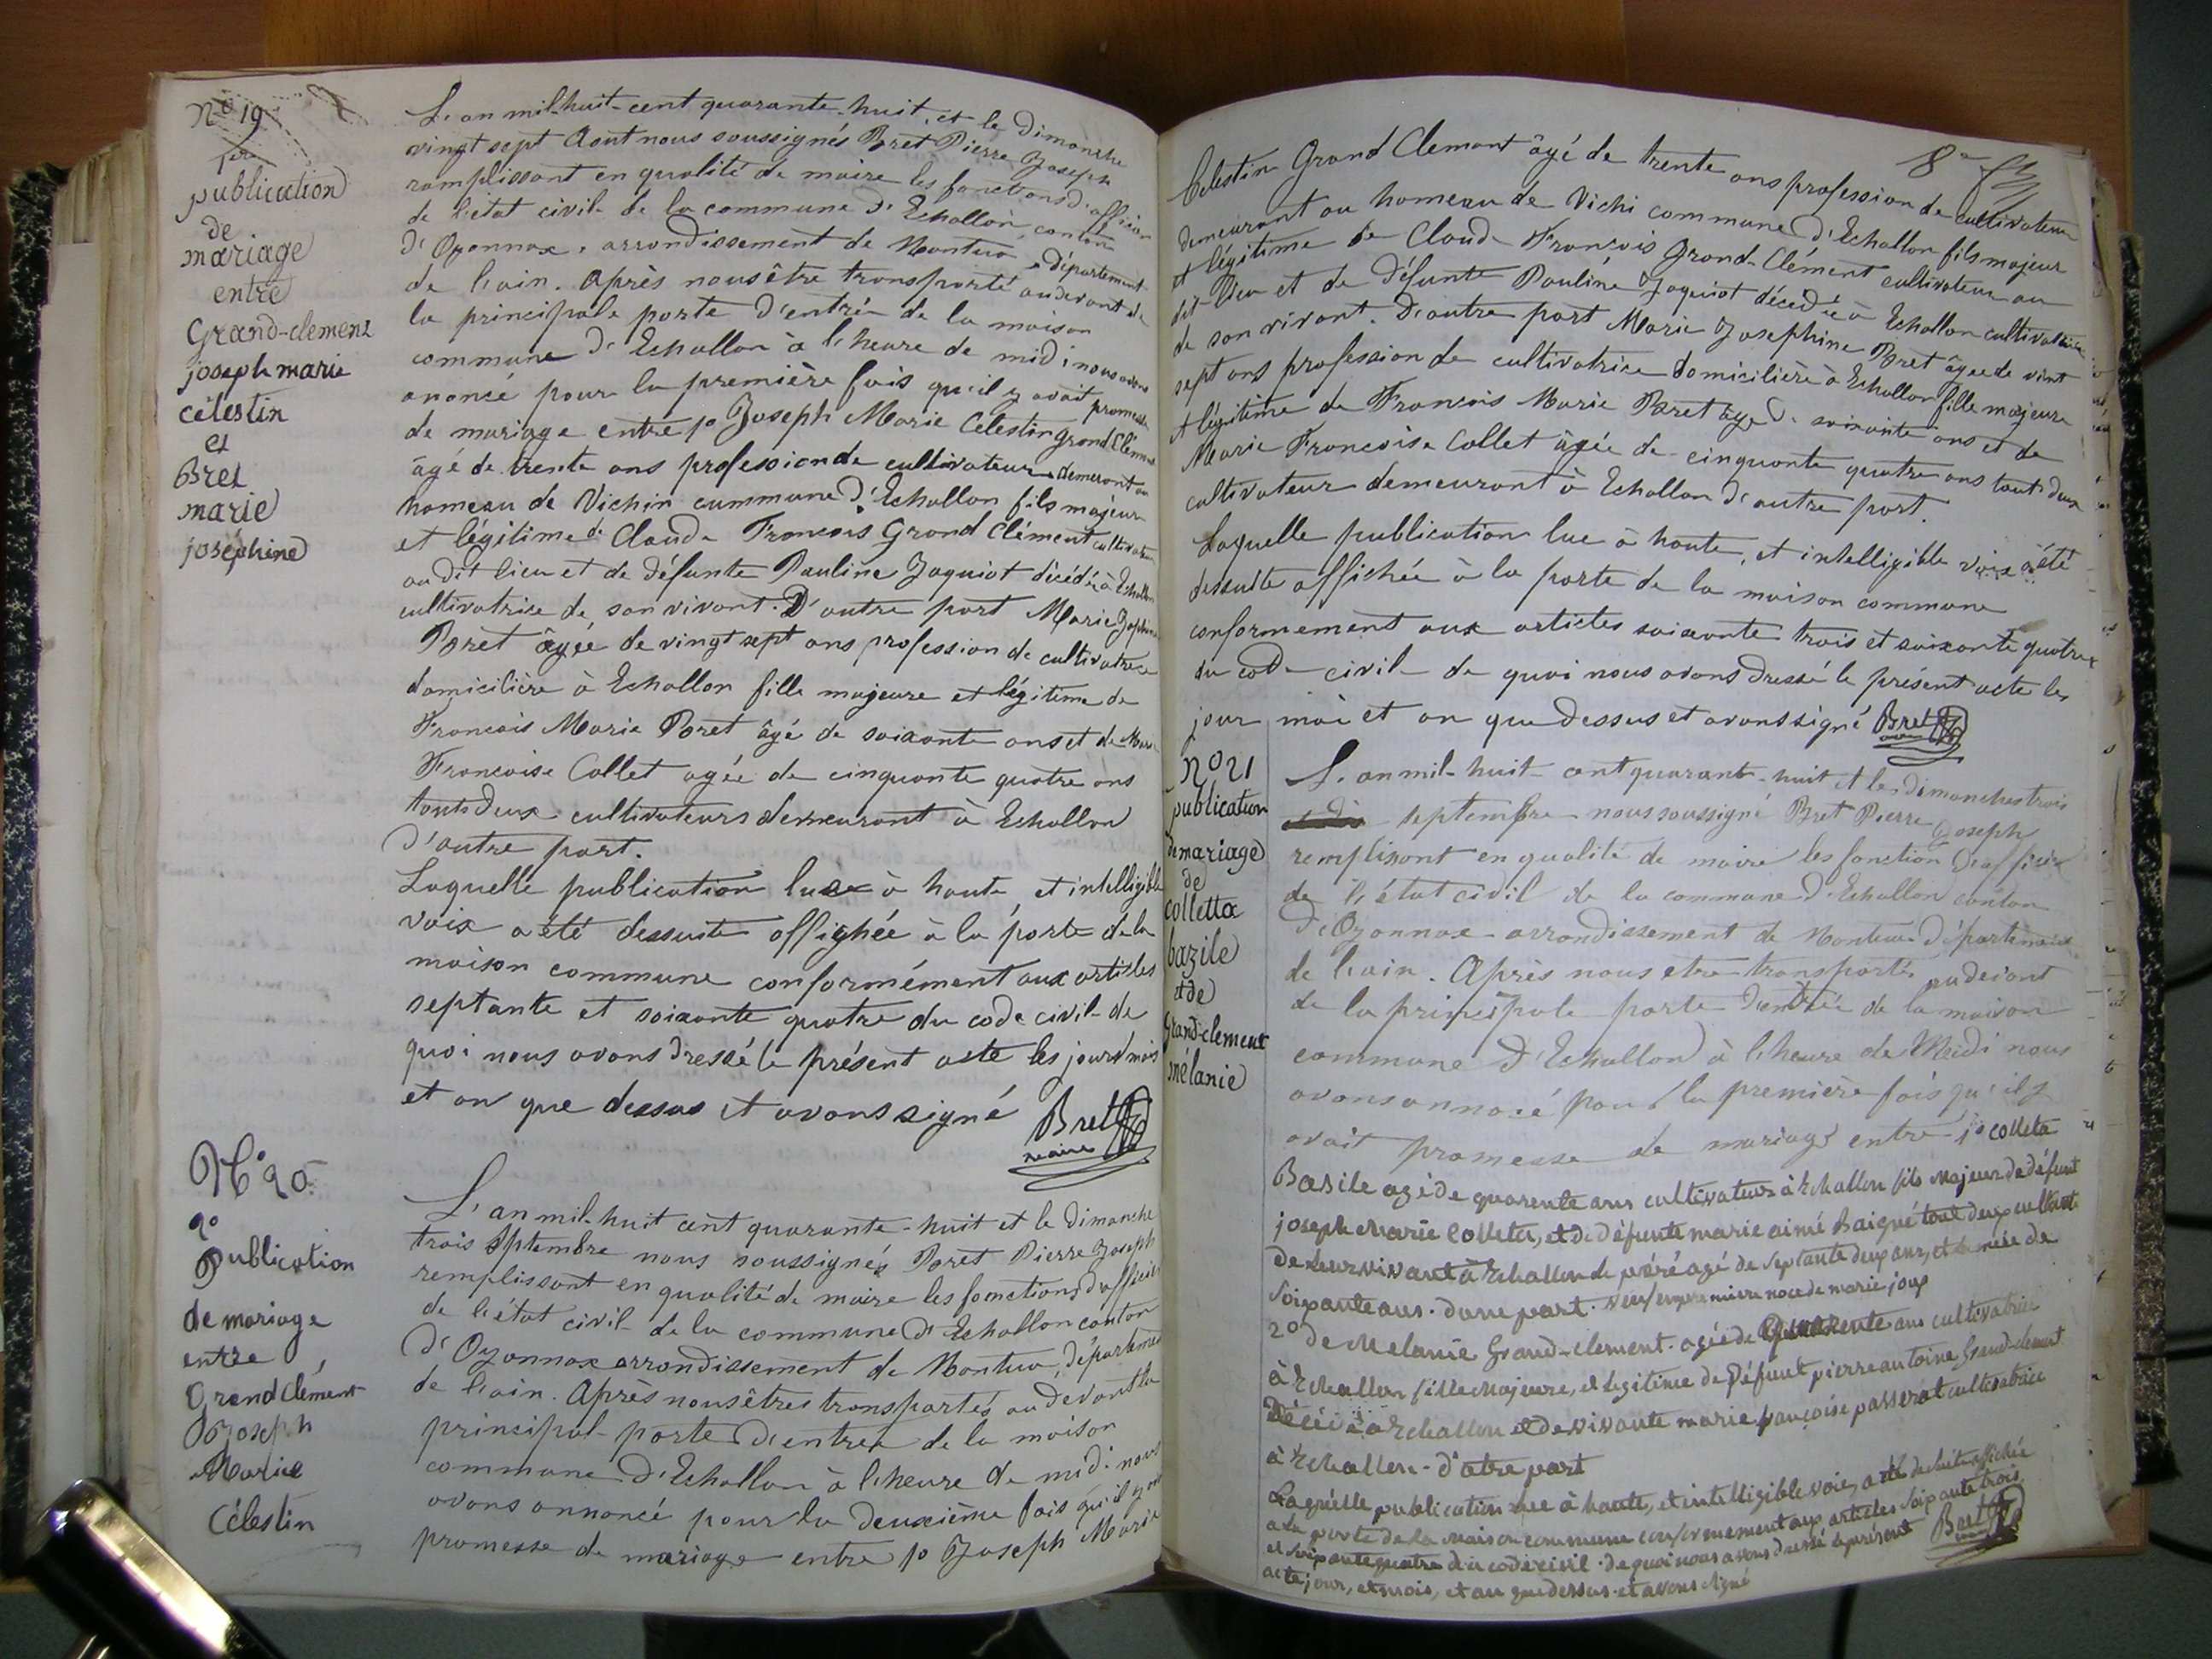 No 19
1ere
publication
de
mariage
entre
Grand-clement
joseph marie
célestin
et
Bret
marie
joséphine
L'an mil-huit-cent quarante-huit, et le Dimanche
vingt sept Aout nous soussignés Bret Pierre Joseph
remplissant en qualité de maire les fonctions d'officier
de l'état civil de la commune d'Echallon canton
d'Oyonnax, arrondissement de Nantua, département
de l'ain. Après nous être transporté audevant de
la principale porte d'entrée de la maison
commune d'Echallon à l'heure de midi nous avons
anoncé pour la première fois qu'il y avait promesse
de mariage entre 1o Joseph Marie Celestin Grand Clément
âgé de trente ans profession de cultivateur demeurant au
hameau de Vichin cummune d'Echallon fils majeur
et légitime de Claude Francois Grand Clément cultivateur
au dit lieu et de défunte Pauline Jaquiot décédée à Echallon
cultivatrice de son vivant. D'autre part Marie Joséphine
Bret âgée de vingt sept ans profession de cultivatrice
domicilière à Echallon fille majeure et légitime de
Francois Marie Bret âgé de soixante ans et de Marie
Francoise Collet agée de cinquante quatre ans
touts deux cultivateurs demeurant à Echallon
d'autre part.
Laquelle publication lue à haute, et intelligible
voix a été dessuite affighée à la porte de la
maison commune conformément aux articles
septante et soixante quatre du code civil de
quoi nous avons dressé le présent acte les jours mois
et an que dessus et avons signé Bret
maire
No 20
2e
Publication
de mariage
entre
Grand Clément
Joseph
Marie
Célestin
L'an mil-huit cent quarante-huit et le dimanche
trois septembre nous soussignés Bret Pierre Joseph
remplissant en qualité de maire les fonctions d'officier
de l'état civil de la commune d'Echallon canton
d'Oyonnax arrondissement de Nantua, département
de l'ain. Après nous êtres transportés au devant la
principal porte d'entrée de la maison
commune d'Echallon à l'heure de midi nous
avons annoncé pour la deuxième fois qu'il y avait
promesse de mariage entre 1o Joseph Marie
8e
Celestin Grand Clement âgé de trente ans profession de cultivateur
demeurant au homeau de Vichi commune d'Echallon fils majeur
et légitime de Claude François Grand-Clément cultivateur au
dit-lieu et de défunte Pauline Jaquiot décédée à Echallon cultivatrice
de son vivant. D'autre part Marie Josephine Bret âgée de vint
sept ans profession de cultivatrice domicilière à Echallon fille majeure
et légitime de Francois Marie Bret âgé de soixante ans et de
Marie Francoise Collet âgée de cinquante quatre ans tout deux
cultivateur demeurant à Echallon d'autre part.
Laquelle publication lue à haute, et intelligible voix a été
dessuite affichée à la porte de la maison commune
conformement aux articles soixante trois et soixante quatre
du code civil de quoi nous avons dressé le présent acte les
jour moi et an que dessus et avons signé Bret
No 21
publication
de mariage
de
colletta
bazile
et de
Grand-clement
mélanie
L'an mil-huit-cent quarante-huit et les dimanches trois
septembre nous soussigné Bret Pierre Joseph
remplissant en qualité de maire les fonction d'officier
de l'état civil de la commune d'Echallon canton
d'Oyonnax arrondissement de Nantua département
de l'ain. Après nous etre transportés audevant
de la principale porte d'entrée de la maison
commune d'Echallon à l'heure de Midi nous
avons annoncé pour la première fois qu'il y
avait promesse de mariage entre 1o colleta
Basile agé de quarente ans cultivateur à Echallon fils majeur de défunt
joseph marie Colleta, et de défunte marie aimé Baigné tout deux cultivat
de leur vivant à Echallon le père agé de septante deux ans, et la mère de
soixante ans. d'une part. veuf en premiere noce de marie joup
2o de Melanie Grand-clement. agée de trente ans cultivatrice
à Echallon fille majeure, et legitime de défunt pierre antoine Grand-clement
décédé à Echallon et de vivante marie françoise passerat cultivatrice
à Echallon - d'atre part
Laquelle publication lue à haute, et intelligible voie, a été de suite affichée
a la porte de la maison commune conformement aux articles soixante trois
et soixante quatre du code civil. de quoi nous avons dressé le présent
acte jour, et mois, et au que dessus et avons signé Bret